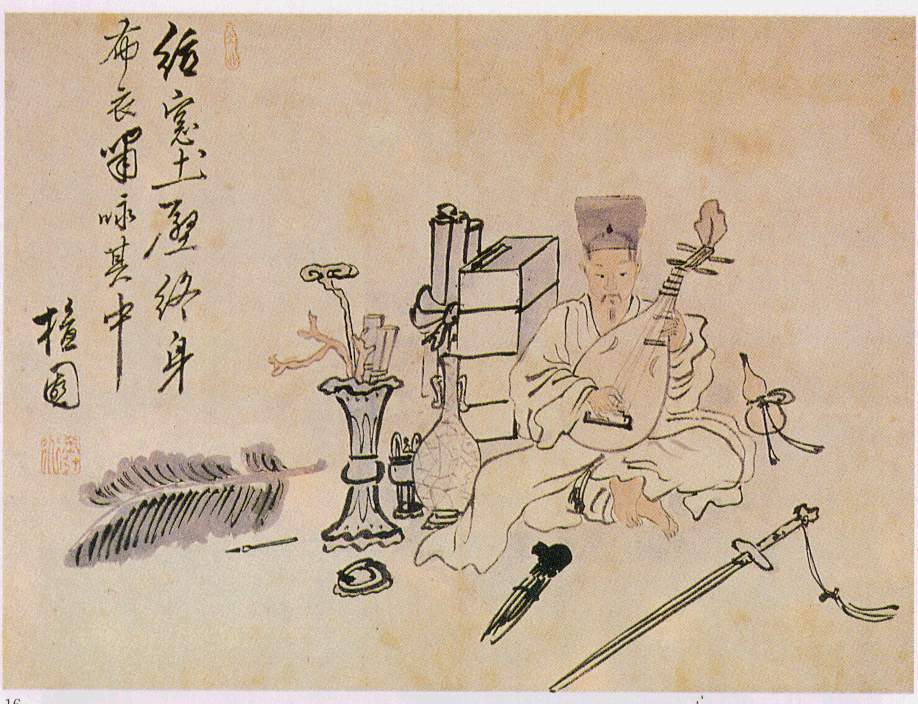 紙窓土壁終身
布衣嘯咏其中
檀園
16